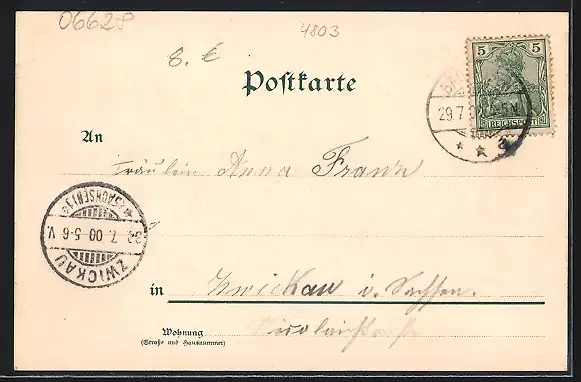 06628
4803
8. €
Postkarte
5 5
REICHSPOST
29.7
An
Fräulein Anna Frank
ZWICKAU
(SACHSEN) 1
7. 00 5-6 V.
in Zwickau i. Sachsen.
Nicolaistraße
Wohnung
(Straße und Hausnummer)